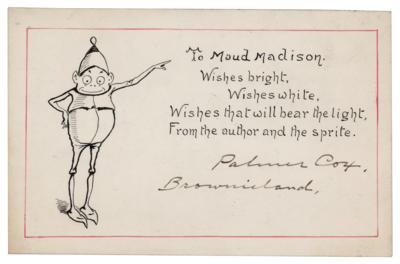 To Maud Madison.
Wishes bright,
Wishes white,
Wishes that will bear the light,
From the author and the sprite.
Palmer Cox.
Brownieland,